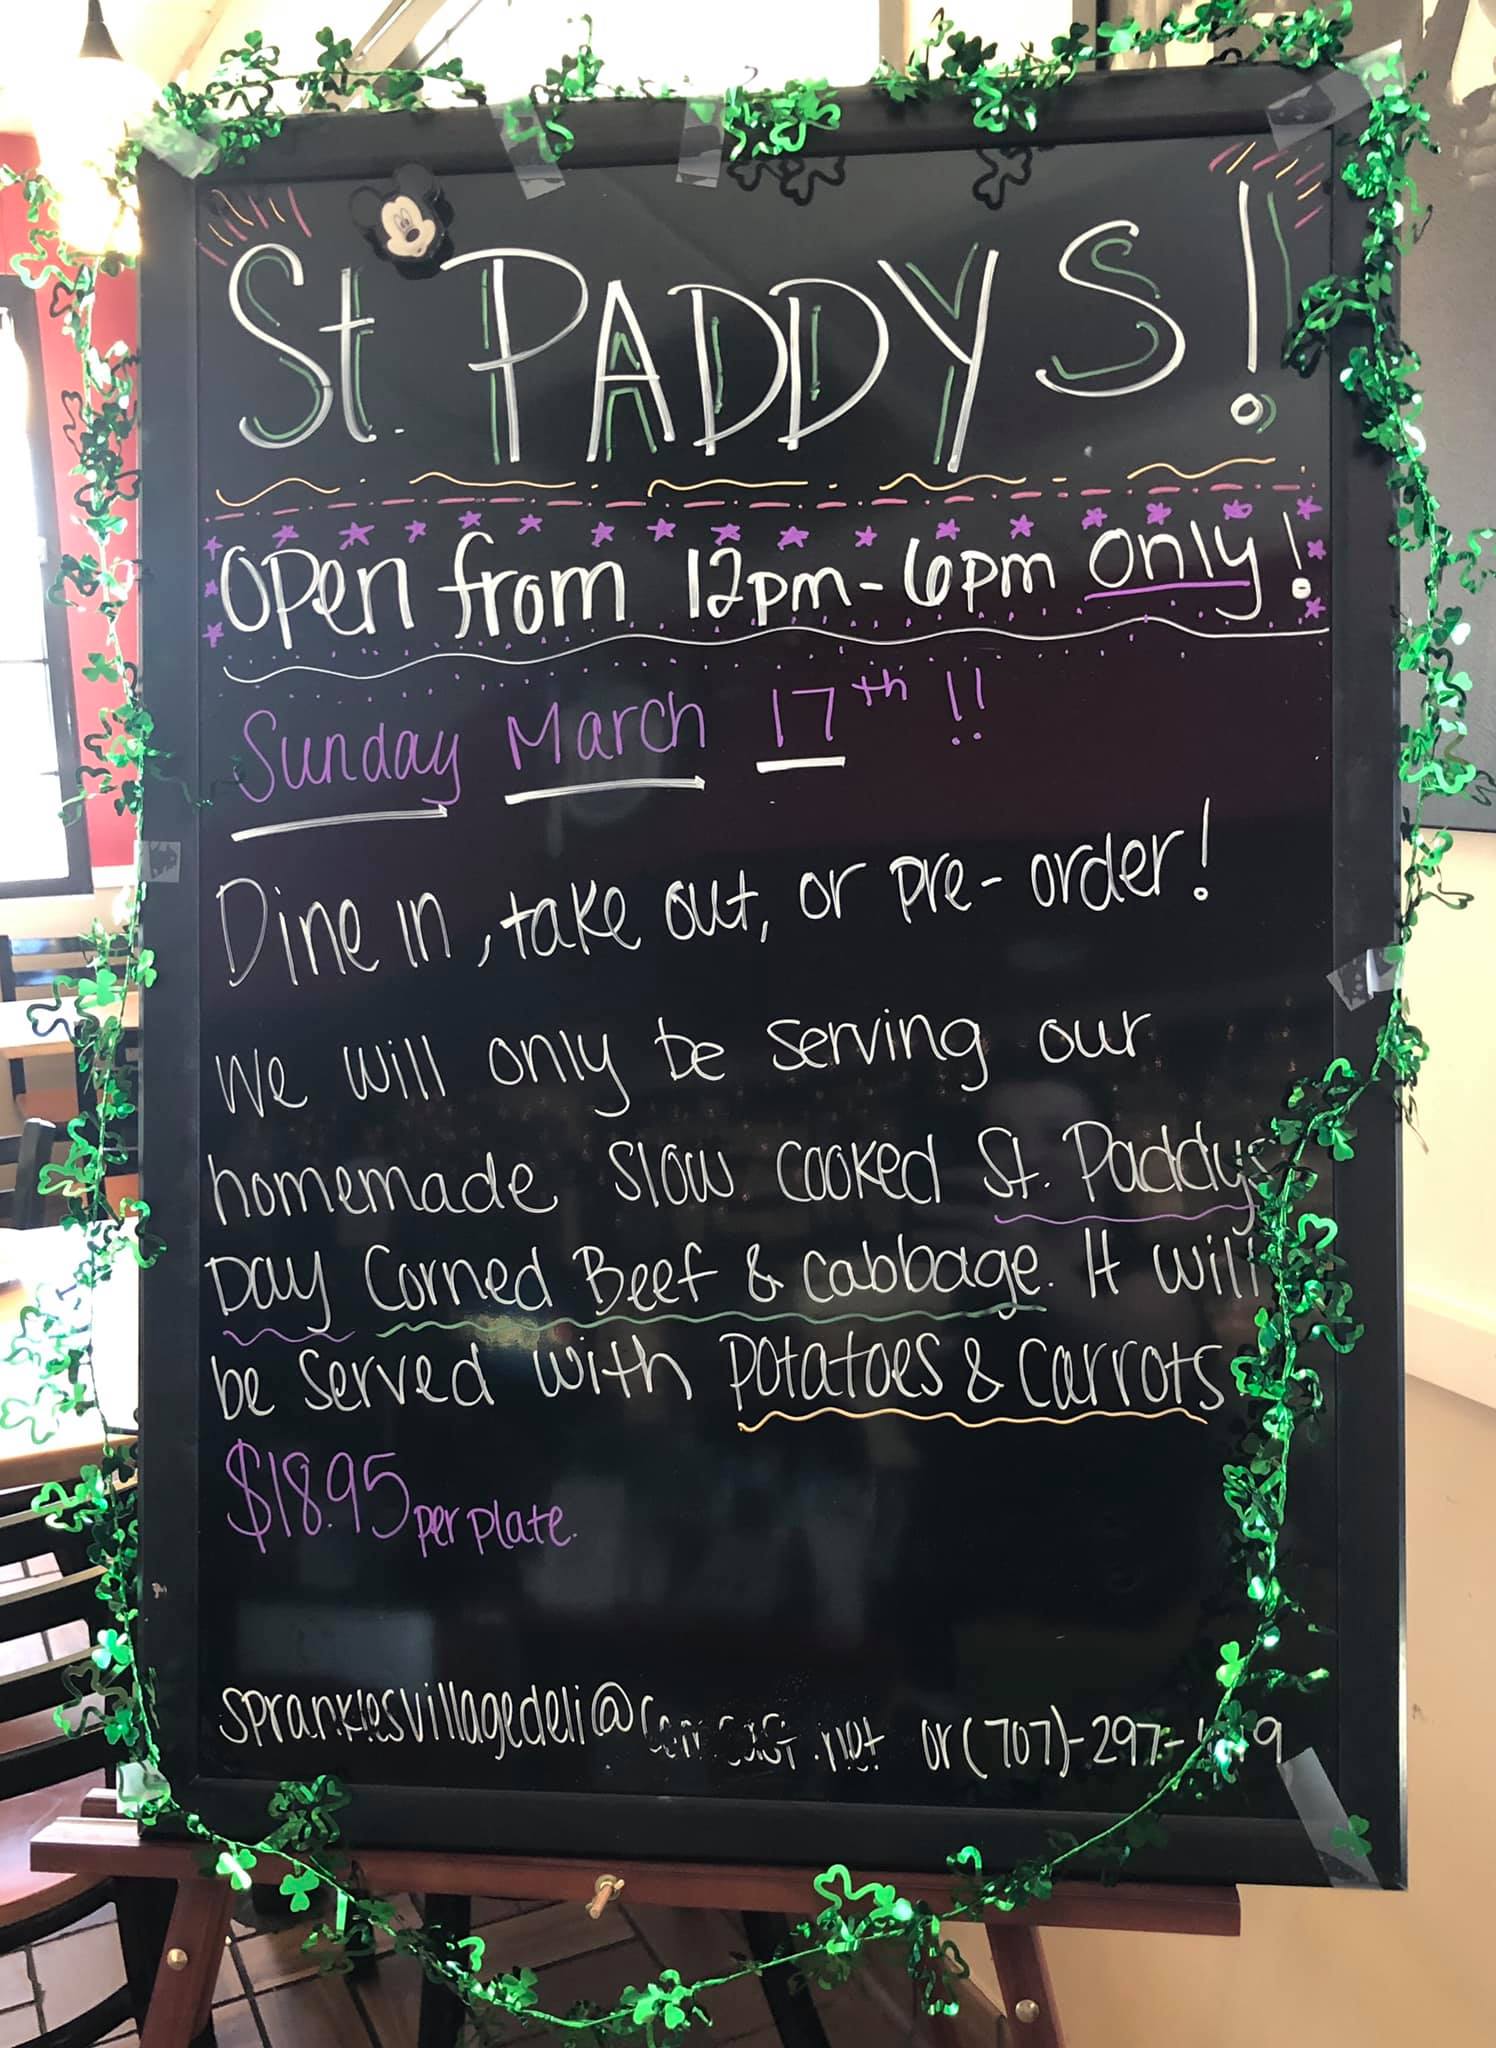 St. PADDYS!
Open from 12pm-6pm only!
Sunday March 17th!!
Dine in, take out, or pre-order!
We will only be serving our
homemade slow cooked St. Paddys
Day Corned Beef & cabbage. It will
be served with potatoes & carrots
$18.95 per plate.
spranklesvillagedeli@comcast.net or (707)-297-